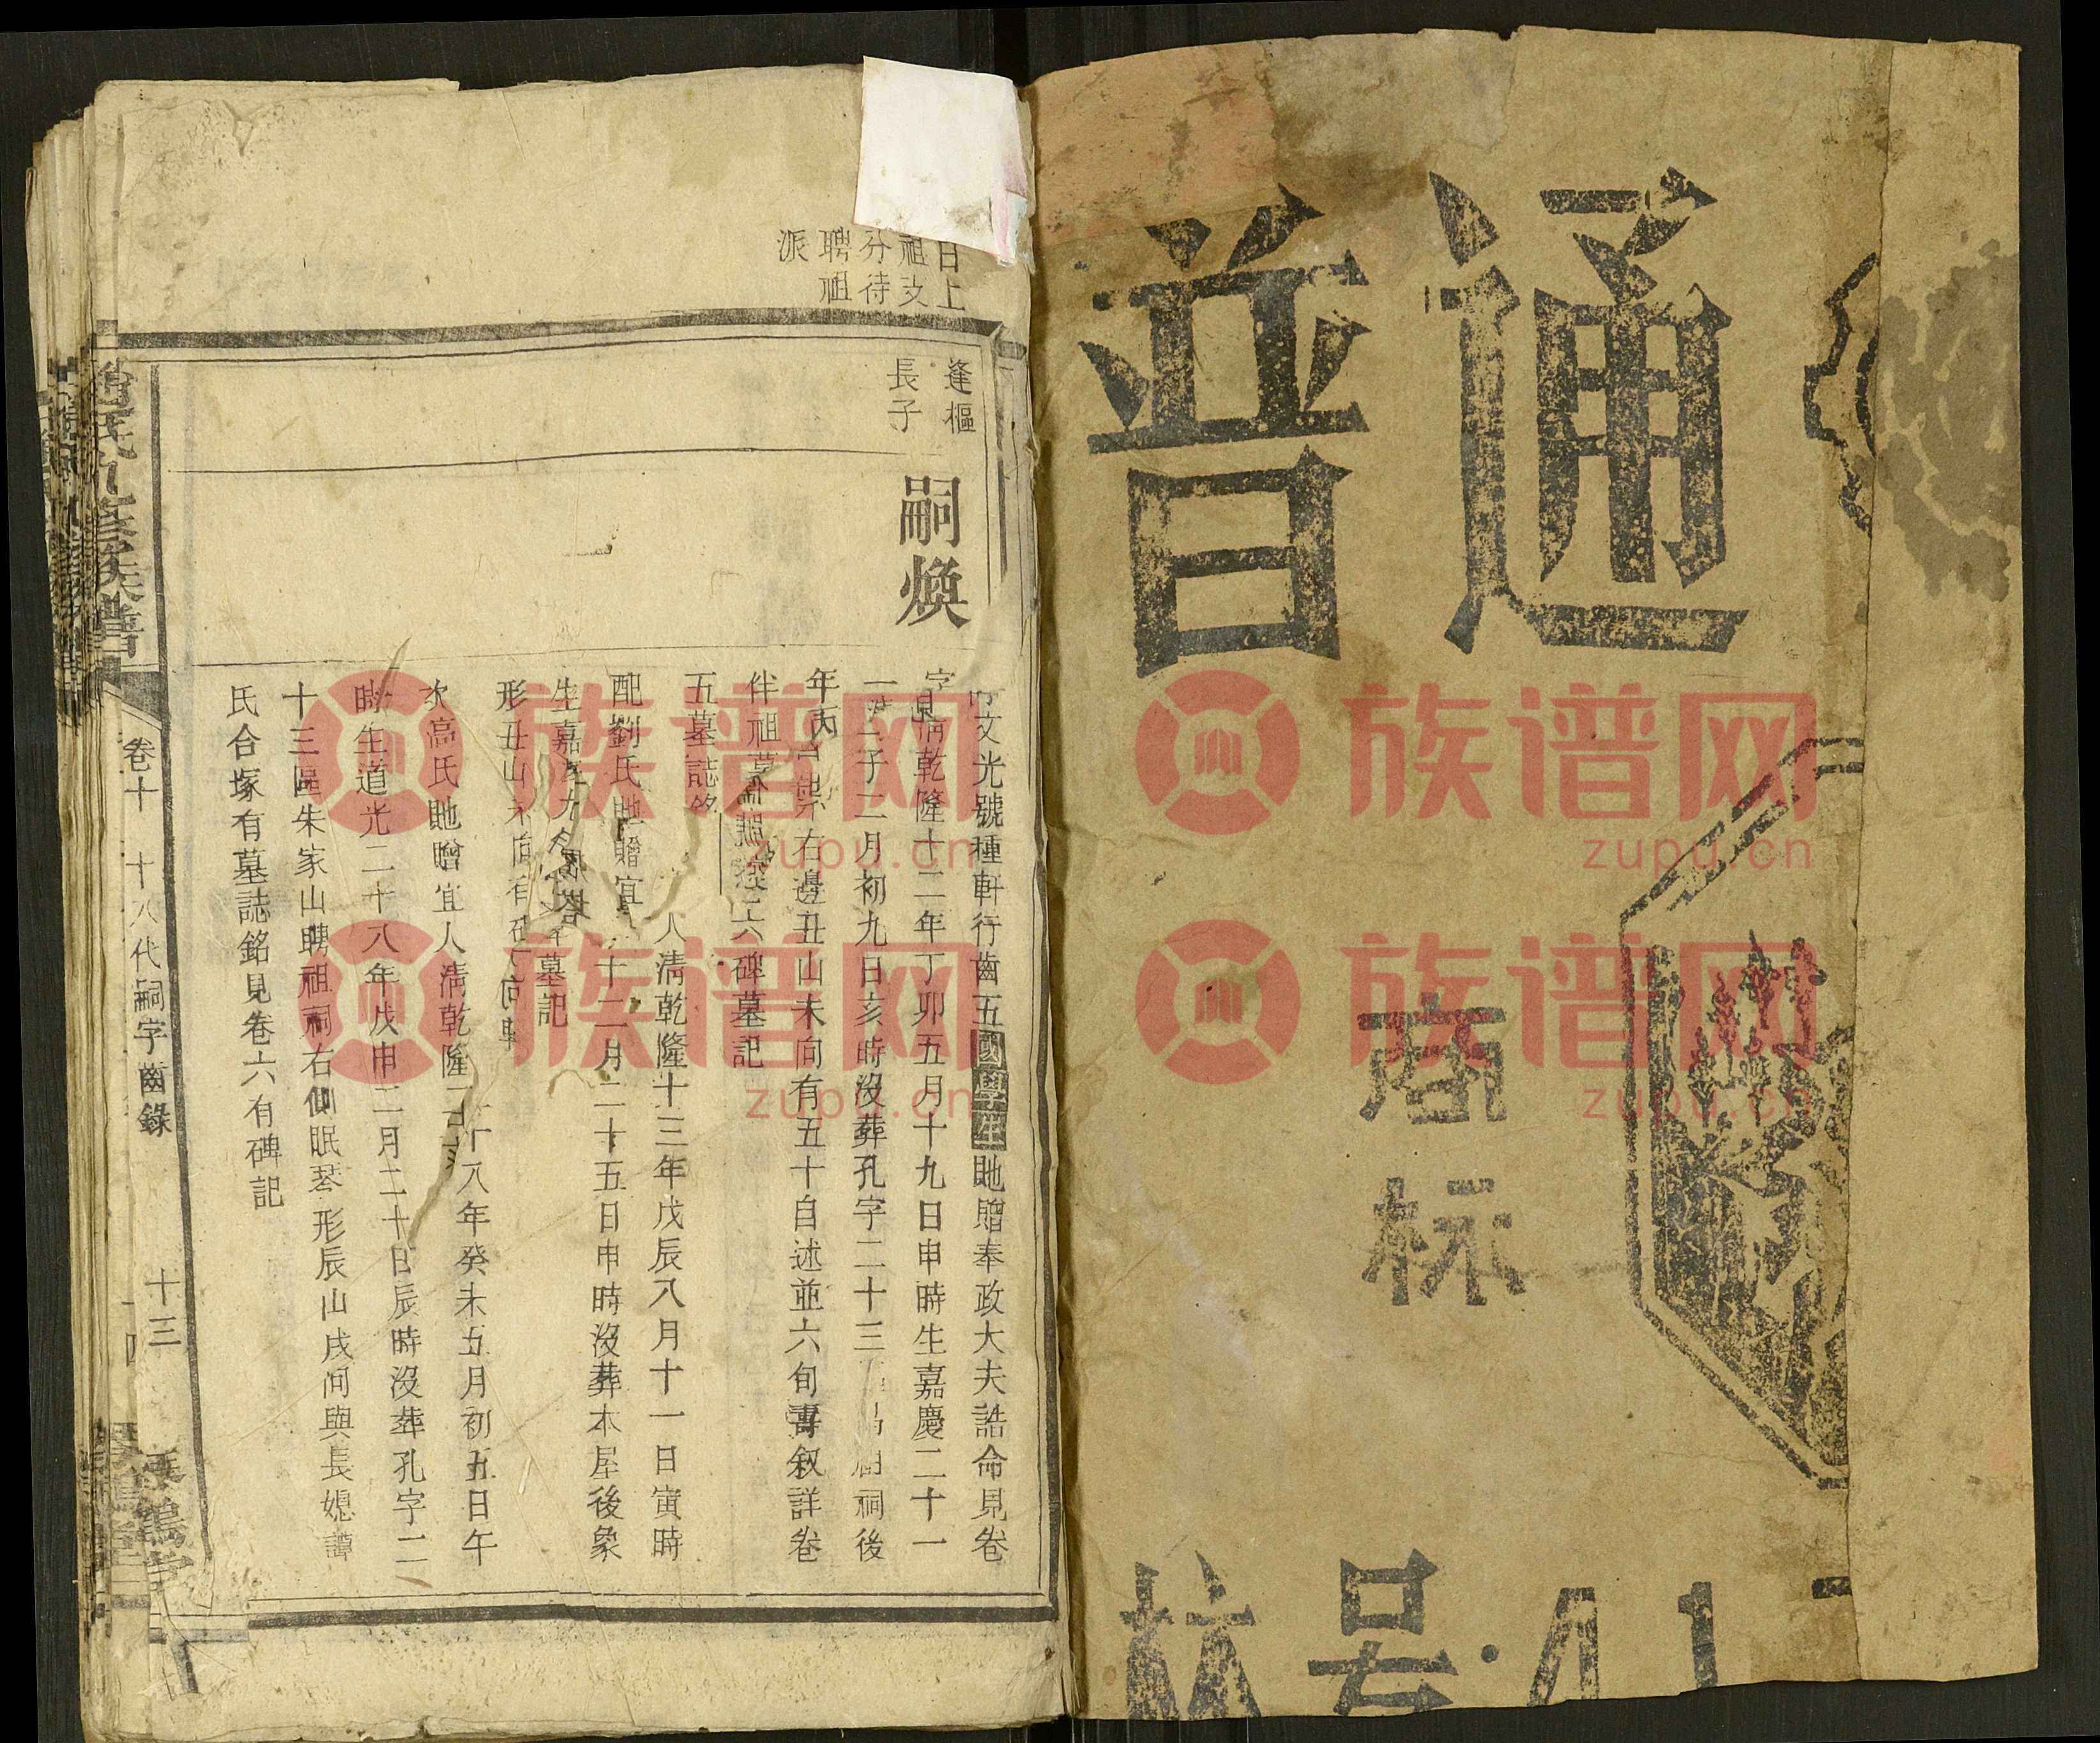 日上
祖支
分待
聘祖
派
逢樞
長子
嗣煥
文光號種軒行齒五國學生貤贈奉政大夫誥命見卷
清乾隆十二年丁卯五月十九日申時生嘉慶二十一
年丙子二月初九日亥時沒葬孔字二十三
祖祠後
右邊丑山未向有五十自述並六旬壽叙詳卷
伴祖
六碑墓記
五墓誌銘
配劉氏貤贈宜人清乾隆十三年戊辰八月十一日寅時
生嘉慶九年
十二月二十五日申時沒葬本屋後象
形丑山未向有碑
墓記
次高氏貤贈宜人清乾隆二十八年癸未五月初五日午
時生道光二十八年戊申二月二十日辰時沒葬孔字二
十三區朱家山聘祖祠右仙眠琴形辰山戌向與長媳譚
氏合塚有墓誌銘見卷六有碑記
氏九修族譜
卷十
十八代嗣字齒錄
十三
普通
商标
号:41
族谱网
zupu.cn
族谱网
zupu.cn
族谱网
zupu.cn
族谱网
zupu.cn